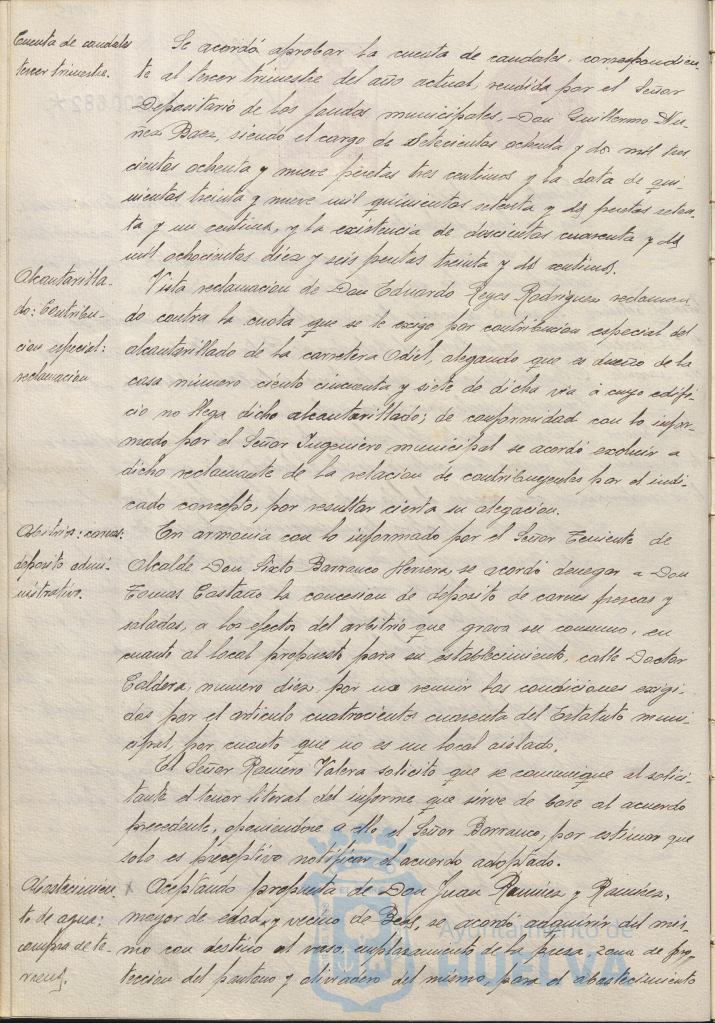 Cuenta de caudales
tercer trimestre.
Se acordó aprobar la cuenta de caudales, correspondien-
te al tercer trimestre del año actual, rendida por el Señor
Depositario de los fondos municipales, Don Guillermo Nu-
ñez Baez, siendo el cargo de setecientas ochenta y dos mil tres
cientas ochenta y nueve pesetas tres centimos y la data de qui-
nientas treinta y nueve mil quinientas setenta y dos pesetas seten-
ta y un centimo, y la existencia de doscientas cuarenta y dos
mil ochocientas diez y seis pesetas treinta y dos centimos.
Alcantarilla-
do: Contribu-
cion especial:
reclamacion
Vista reclamacion de Don Eduardo Reyes Rodriguez reclaman
do contra la cuota que se le exige por contribucion especial del
alcantarillado de la carretera Odiel, alegando que es dueño de la
casa número ciento cincuenta y siete de dicha via á cuyo edifi-
cio no llega dicho alcantarillado; de conformidad con lo infor-
mado por el Señor Ingeniero municipal se acordó excluir a
dicho reclamante de la relacion de contribuyentes por el indi-
cado concepto, por resultar cierta su alegacion.
Arbitrios: carnes:
deposito admi-
nistrativo.
En armonia con lo informado por el Señor Teniente de
Alcalde Don Sixto Barranco Herrera, se acordó denegar a Don
Tomas Castaño la concesion de deposito de carnes frescas y
saladas, a los efectos del arbitrio que grava su consumo, en
cuanto al local propuesto para su establecimiento calle Doctor
Caldera, numero diez por no reunir las condiciones exigi-
das por el articulo cuatrocientos cuarenta del Estatuto muni-
cipal, por cuanto que no es un local aislado.
El Señor Romero Valera solicitó que se comunique al solici-
tante el tenor literal del informe que sirve de base al acuerdo
precedente, oponiendose a ello el Señor Barranco, por estimar que
solo es preceptivo notificar el acuerdo adoptado.
Abastecimien-
to de agua:
compra de te-
rrenos.
Aceptando propuesta de Don Juan Ramirez y Ramirez,
mayor de edad y vecino de Beas, se acordó adquirir del mis-
mo con destino al vaso, emplazamiento de la presa, zona de pro-
teccion del pantano y aliviadero del mismo, para el abastecimiento
Ayuntamiento de
HUELVA